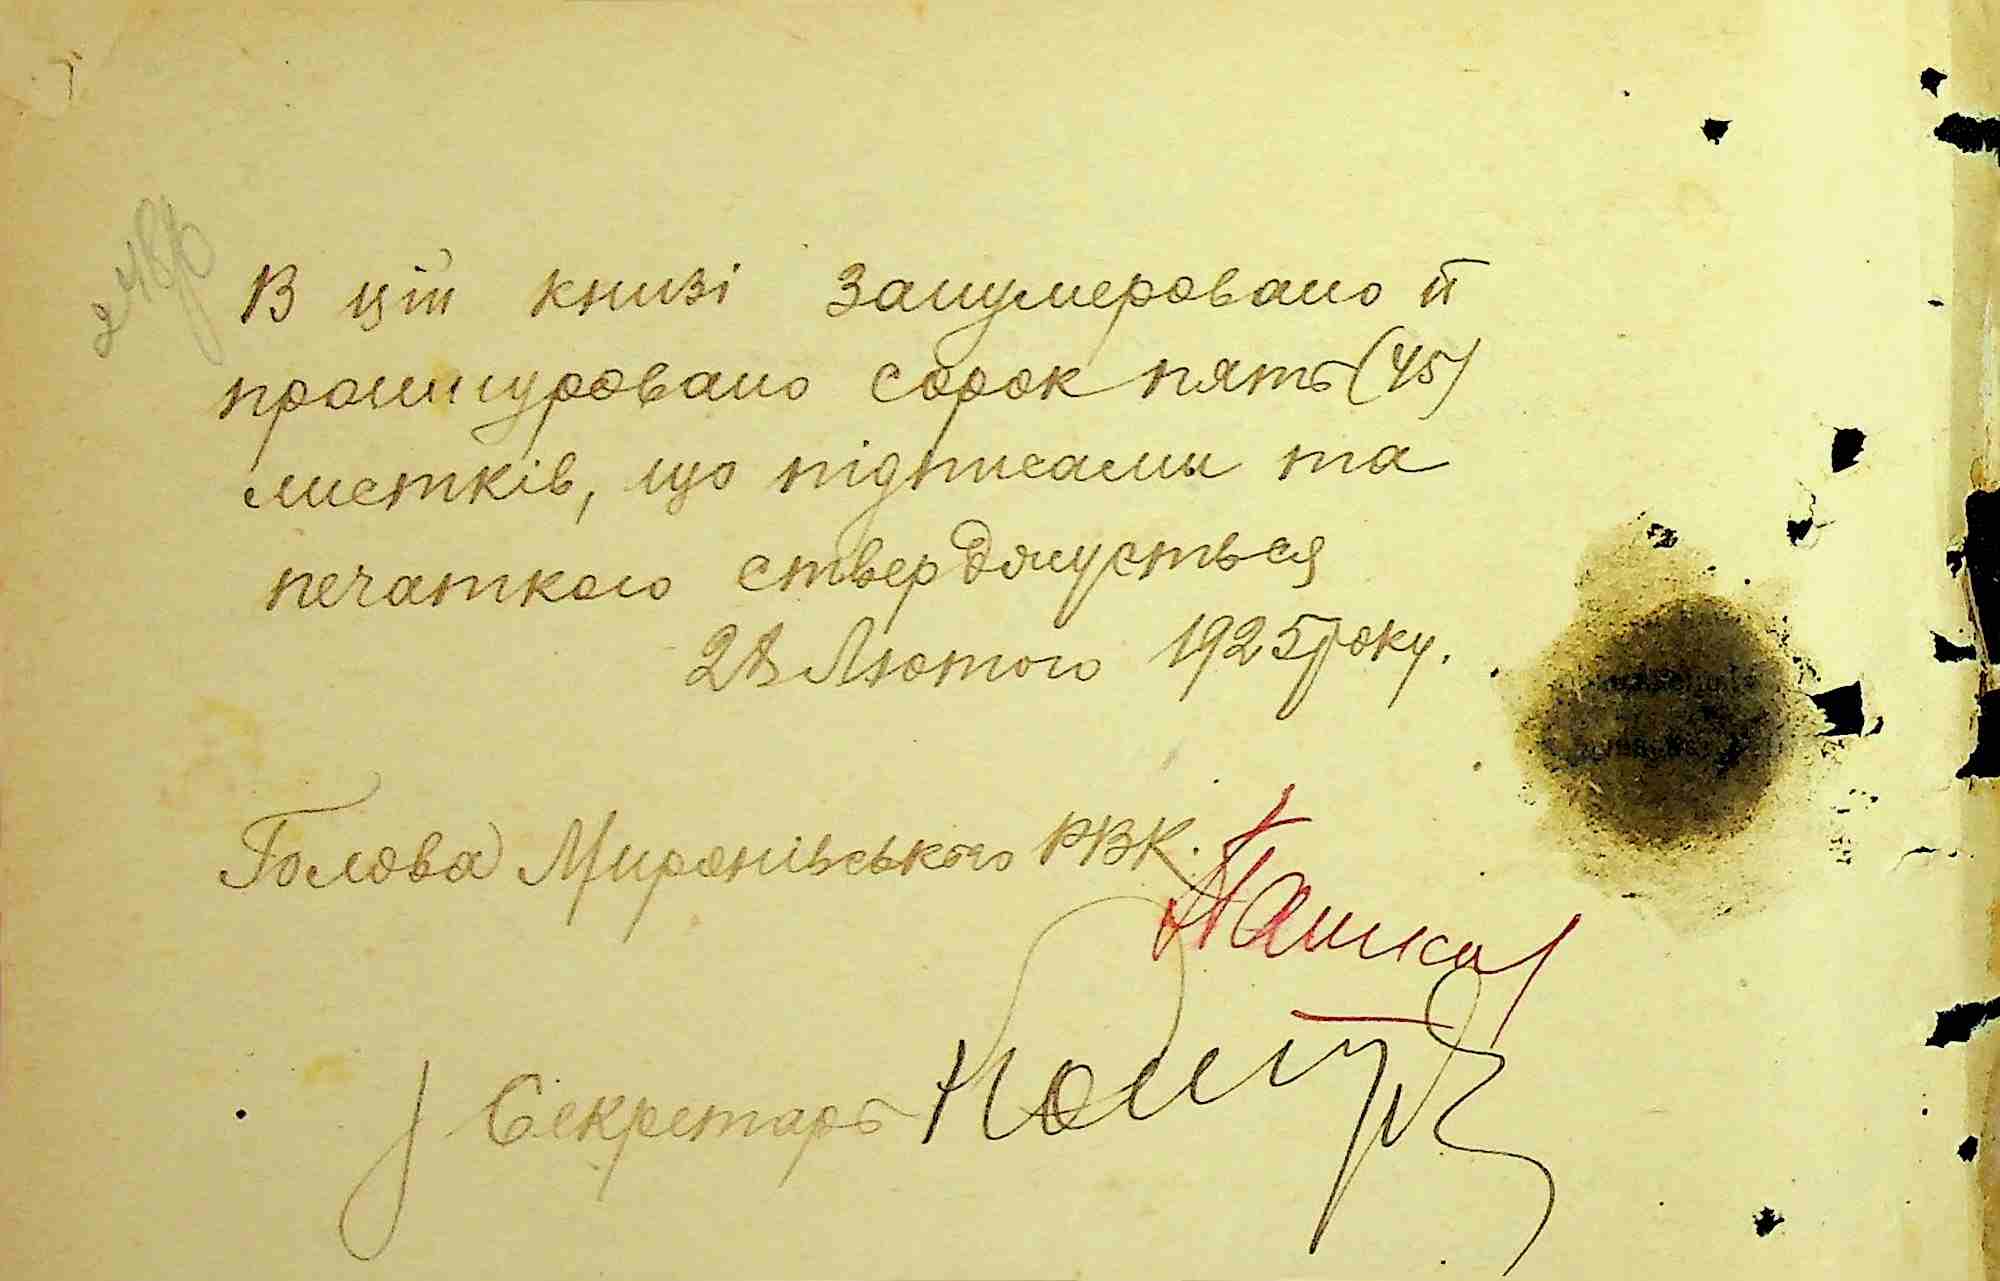 В цій книзі занумеровано й
прошнуровано сорок пять (45)
листків, що підписами та
печаткою стверджується
28 Лютого 1925 року.
Голова Миропільського РВК.
Секретарь